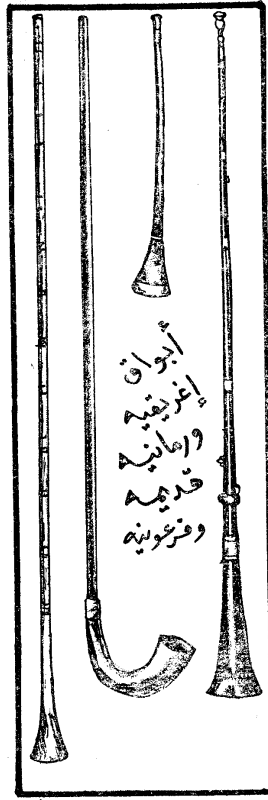 أبواق
إغريقيه
ورمانيه
قديمه
وفرعونيه